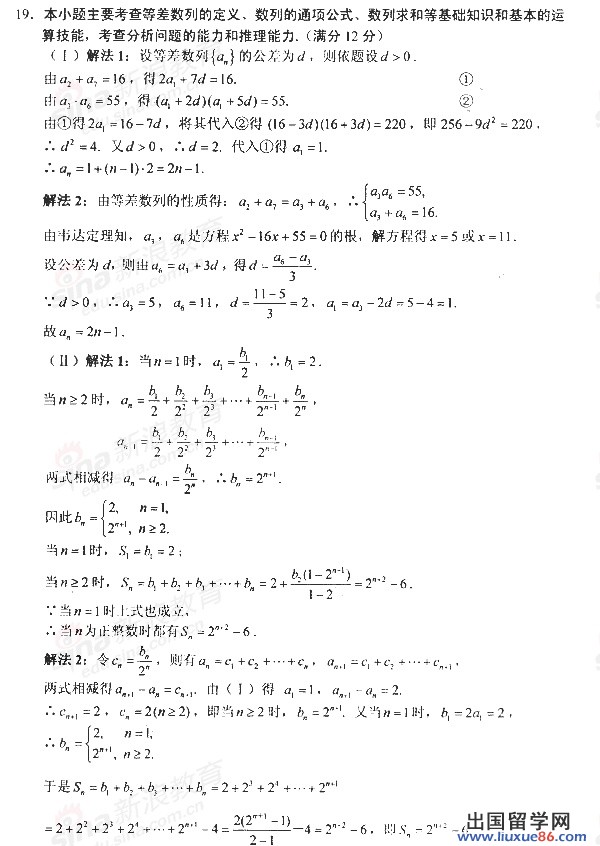 19. 本小题主要考查等差数列的定义、数列的通项公式、数列求和等基础知识和基本的运
算技能，考查分析问题的能力和推理能力.（满分 12 分）
（Ⅰ）解法 1：设等差数列{aₙ}的公差为 d，则依题设 d > 0 .
由 a₂ + a₇ = 16，得 2a₁ + 7d = 16. ①
由 a₃·a₆ = 55，得 (a₁ + 2d)(a₁ + 5d) = 55. ②
由①得 2a₁ = 16 − 7d，将其代入②得 (16 − 3d)(16 + 3d) = 220，即 256 − 9d² = 220，
∴ d² = 4. 又 d > 0，∴ d = 2. 代入①得 a₁ = 1.
∴ aₙ = 1 + (n − 1)·2 = 2n − 1.
解法 2：由等差数列的性质得：a₂ + a₇ = a₃ + a₆，∴ { a₃a₆ = 55, a₃ + a₆ = 16.
由韦达定理知，a₃，a₆ 是方程 x² − 16x + 55 = 0 的根，解方程得 x = 5 或 x = 11.
设公差为 d，则由 a₆ = a₃ + 3d，得 d = (a₆ − a₃)/3.
∵ d > 0，∴ a₃ = 5，a₆ = 11，d = (11 − 5)/3 = 2，a₁ = a₃ − 2d = 5 − 4 = 1.
故 aₙ = 2n − 1.
（Ⅱ）解法 1：当 n = 1 时，a₁ = b₁/2，∴ b₁ = 2.
当 n ≥ 2 时，aₙ = b₁/2 + b₂/2² + b₃/2³ + ⋯ + bₙ₋₁/2ⁿ⁻¹ + bₙ/2ⁿ，
aₙ₋₁ = b₁/2 + b₂/2² + b₃/2³ + ⋯ + bₙ₋₁/2ⁿ⁻¹，
两式相减得 aₙ − aₙ₋₁ = bₙ/2ⁿ，∴ bₙ = 2ⁿ⁺¹.
因此 bₙ = { 2, n = 1, 2ⁿ⁺¹, n ≥ 2.
当 n = 1 时，S₁ = b₁ = 2；
当 n ≥ 2 时，Sₙ = b₁ + b₂ + b₃ + ⋯ + bₙ = 2 + b₂(1 − 2ⁿ⁻¹)/(1 − 2) = 2ⁿ⁺² − 6.
∵ 当 n = 1 时上式也成立，
∴ 当 n 为正整数时都有 Sₙ = 2ⁿ⁺² − 6.
解法 2：令 cₙ = bₙ/2ⁿ，则有 aₙ = c₁ + c₂ + ⋯ + cₙ，aₙ₊₁ = c₁ + c₂ + ⋯ + cₙ₊₁，
两式相减得 aₙ₊₁ − aₙ = cₙ₊₁. 由（Ⅰ）得 a₁ = 1，aₙ₊₁ − aₙ = 2.
∴ cₙ₊₁ = 2，cₙ = 2(n ≥ 2)，即当 n ≥ 2 时，bₙ = 2ⁿ⁺¹. 又当 n = 1 时，b₁ = 2a₁ = 2，
∴ bₙ = { 2, n = 1, 2ⁿ⁺¹, n ≥ 2.
于是 Sₙ = b₁ + b₂ + b₃ + ⋯ + bₙ = 2 + 2³ + 2⁴ + ⋯ + 2ⁿ⁺¹
= 2 + 2² + 2³ + 2⁴ + ⋯ + 2ⁿ⁺¹ − 4 = 2(2ⁿ⁺¹ − 1)/(2 − 1) − 4 = 2ⁿ⁺² − 6，即 Sₙ = 2ⁿ⁺² − 6
新浪教育
edu.sina.com.cn
出国留学网
www.liuxue86.com